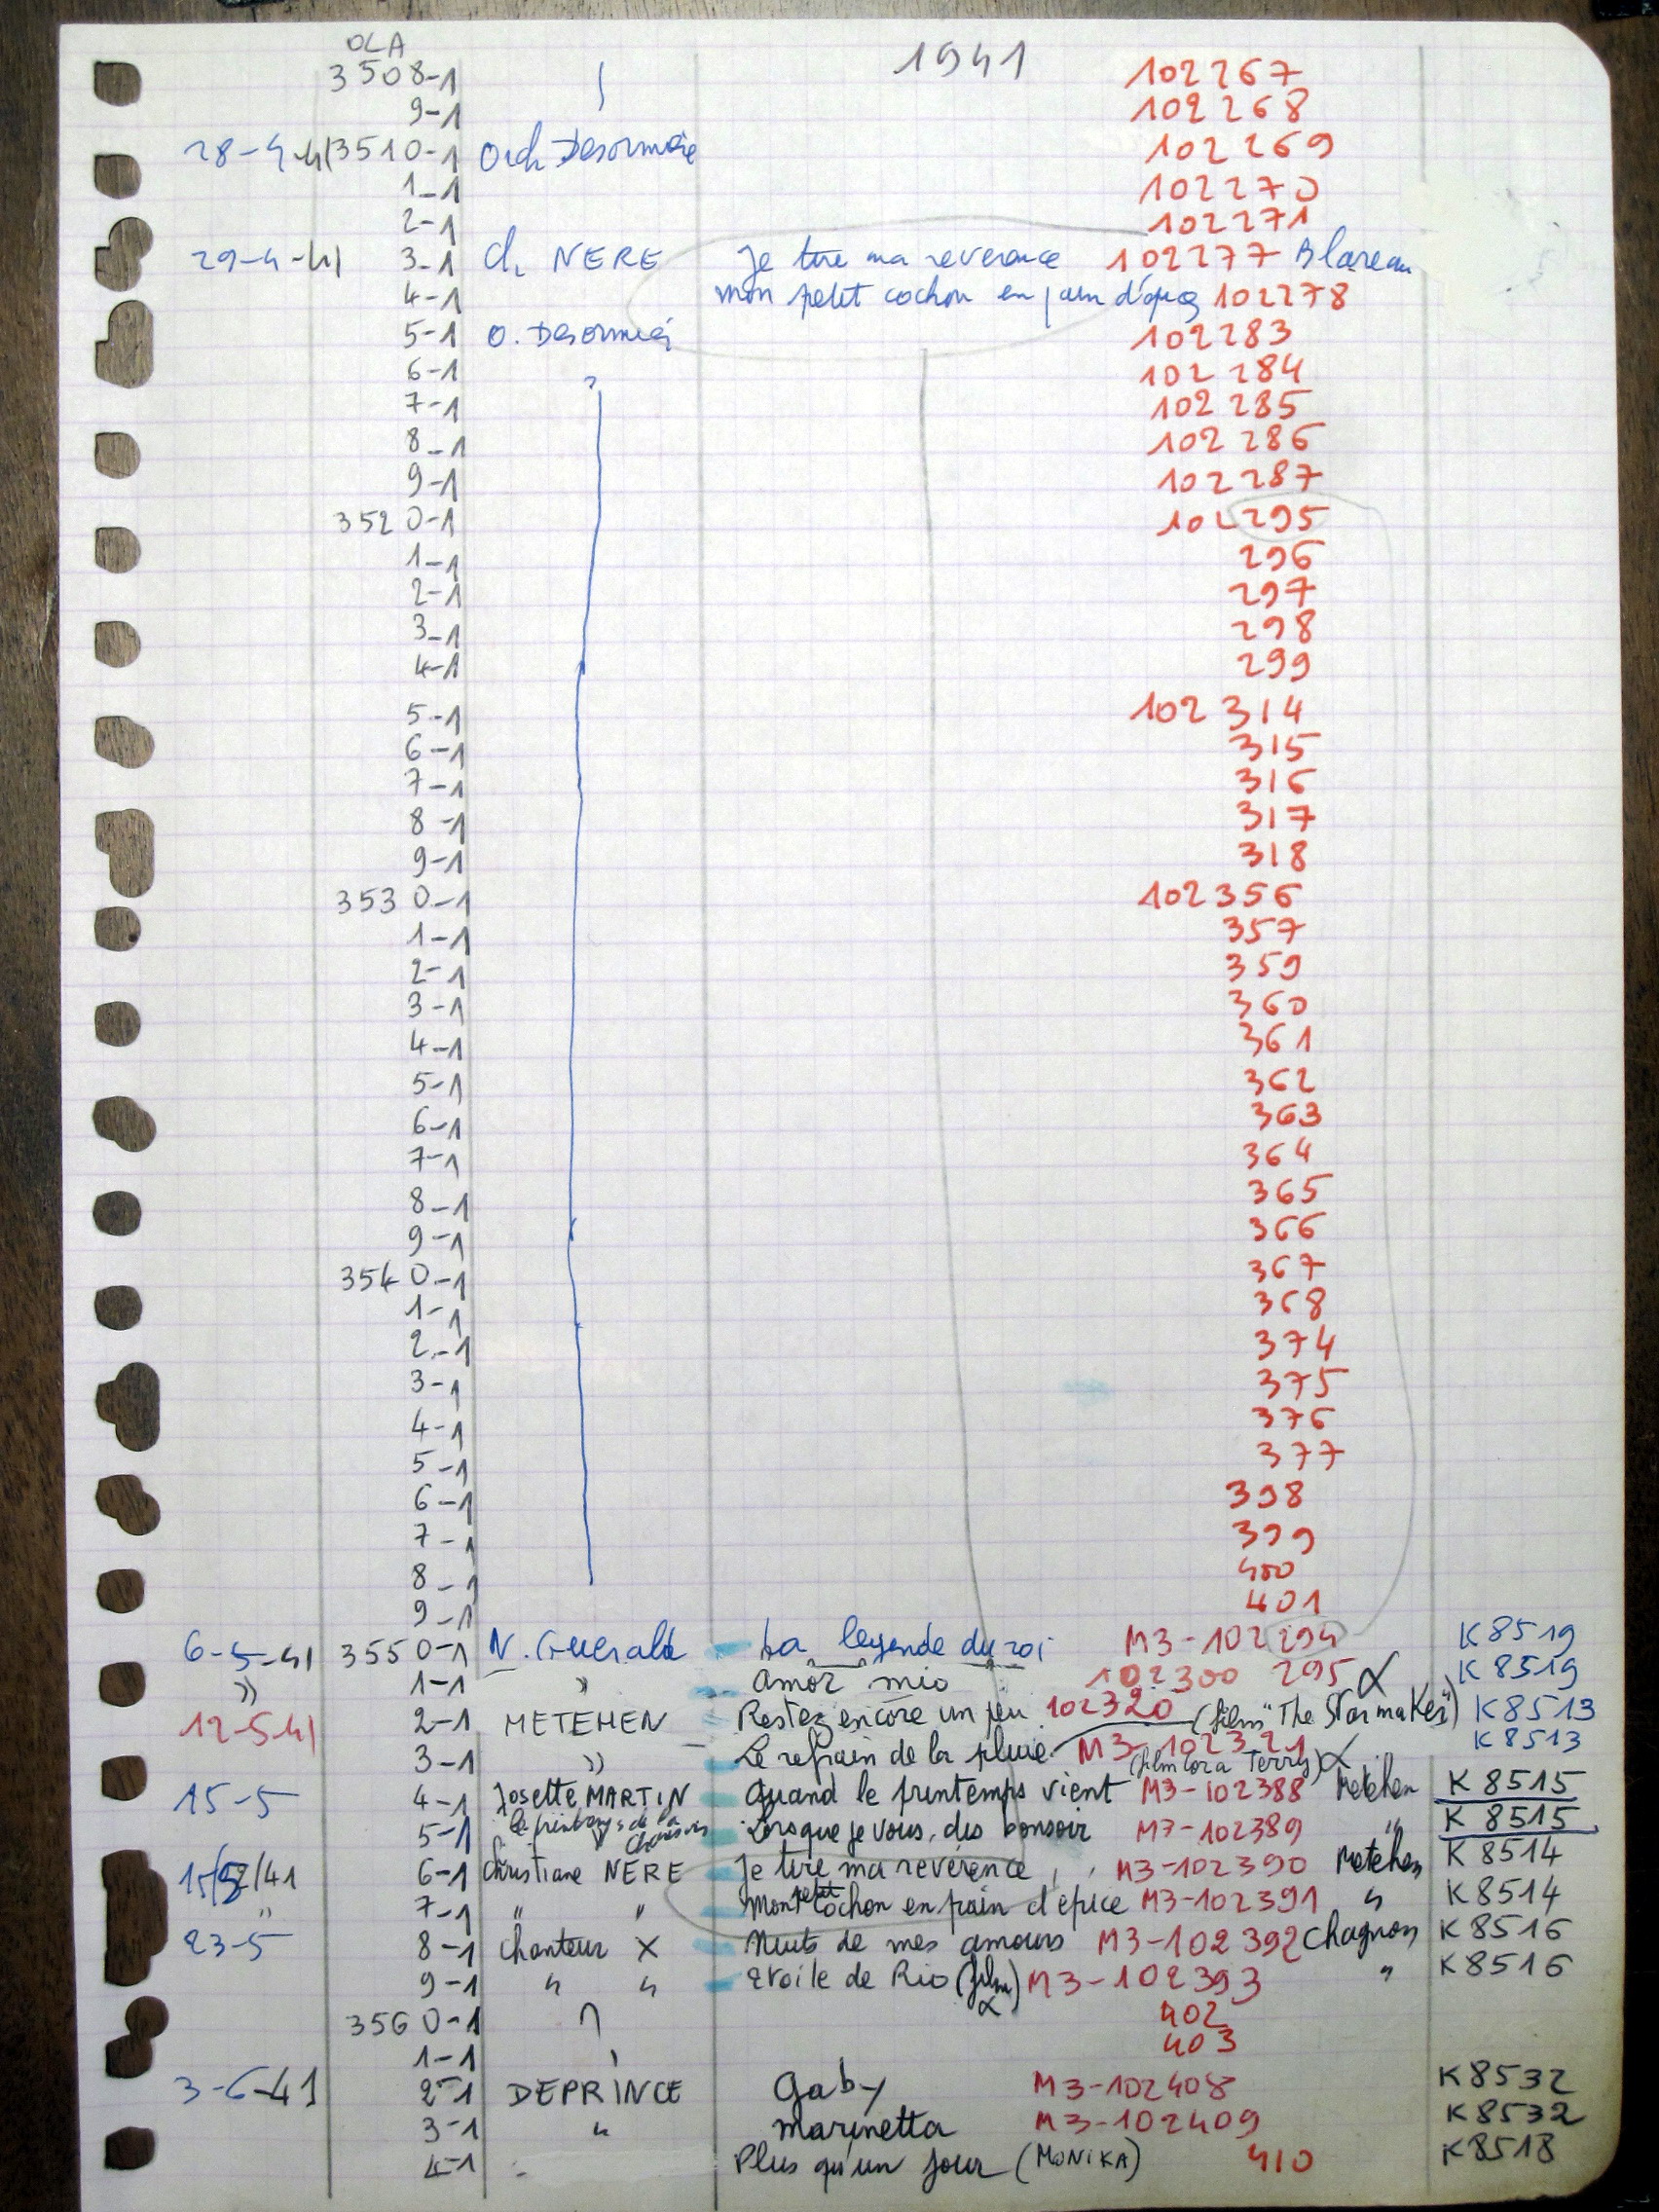 OLA 1941
3508-1 102267
9-1 102268
28-4-41 3510-1 Orch Desormière 102269
1-1 102270
2-1 102271
29-4-41 3-1 Ch NERE Je tire ma reverence 102277 Blareau
4-1 mon petit cochon en pain d'épice 102278
5-1 O. Desormière 102283
6-1 ? 102284
7-1 102285
8-1 102286
9-1 102287
3520-1 102295
1-1 296
2-1 297
3-1 298
4-1 299
5-1 102314
6-1 315
7-1 316
8-1 317
9-1 318
3530-1 102356
1-1 357
2-1 359
3-1 360
4-1 361
5-1 362
6-1 363
7-1 364
8-1 365
9-1 366
3540-1 367
1-1 368
2-1 374
3-1 375
4-1 376
5-1 377
6-1 398
7-1 399
8-1 400
9-1 401
6-5-41 3550-1 N. Guerald La legende du roi M3-102294 K8519
" 1-1 " amor mio 102300 295 α K8519
12-5-41 2-1 METEHEN Restez encore un peu 102320 (film "The Starmaker") K8513
3-1 " Le refrain de la pluie M3-102321 K8513
(film Cora Terry) α
15-5 4-1 Josette MARTIN Quand le printemps vient M3-102388 Metehen K8515
le printemps de la
5-1 " Chanson Lorsque je vous dis bonsoir M7-102389 " K8515
15/5/41 6-1 Christiane NERE Je tire ma reverence M3-102390 Metehen K8514
" 7-1 " " Mon petit cochon en pain d'epice M3-102391 " K8514
23-5 8-1 chanteur X Nuits de mes amours M3-102392 Chagnon K8516
9-1 " " Etoile de Rio (film) M3-102393 " K8516
α
3560-1 402
1-1 403
3-6-41 2-1 DEPRINCE Gaby M3-102408 K8532
3-1 " marinetta M3-102409 K8532
4-1 Plus qu'un jour (MONIKA) 410 K8518